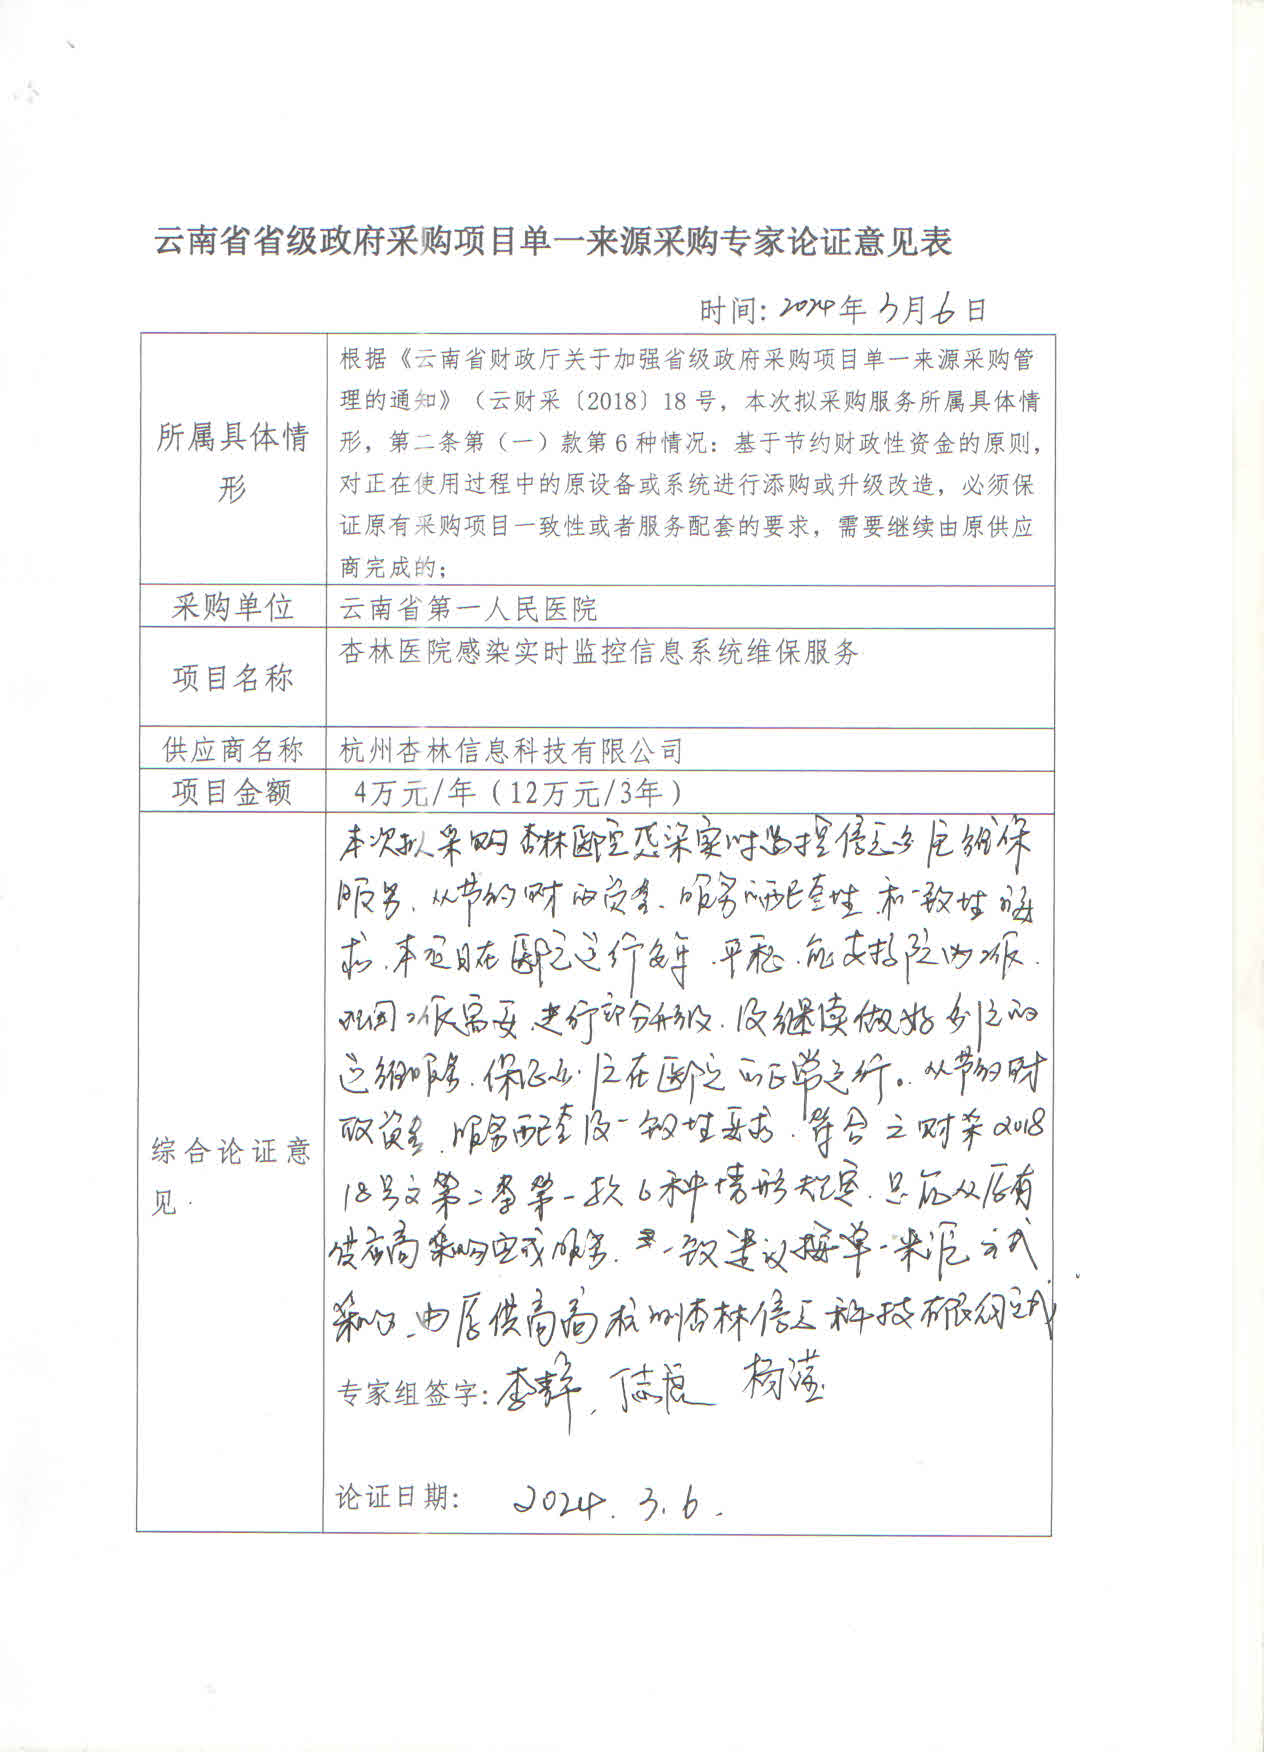 云南省省级政府采购项目单一来源采购专家论证意见表
时间: 2024年3月6日
所属具体情形
根据《云南省财政厅关于加强省级政府采购项目单一来源采购管
理的通知》（云财采〔2018〕18号，本次拟采购服务所属具体情
形，第二条第（一）款第6种情况：基于节约财政性资金的原则，
对正在使用过程中的原设备或系统进行添购或升级改造，必须保
证原有采购项目一致性或者服务配套的要求，需要继续由原供应
商完成的；
采购单位
云南省第一人民医院
项目名称
杏林医院感染实时监控信息系统维保服务
供应商名称
杭州杏林信息科技有限公司
项目金额
4万元/年（12万元/3年）
综合论证意见
本次拟采购杏林医院感染实时监控信息系统维保
服务，从节约财政资金、服务的配套性和一致性要
求，本项目在医院运行多年，平稳，能支持院内
需要，进行部分升级，及继续做好系统的
运维服务，保证系统在医院的正常运行。从节约财
政资金、服务配套及一致性要求，符合云财采2018
18号文第二条第一款6种情形规定，只能从原有
供应商采购完成服务，一致建议按单一来源方式
采购，由原供应商杭州杏林信息科技有限公司完成
专家组签字: 李静, 杨滢
论证日期: 2024.3.6.